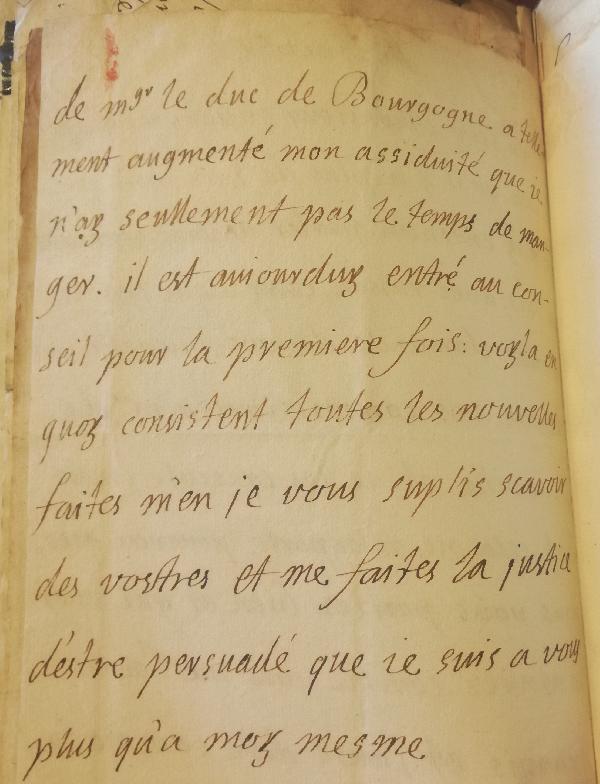 de mgr le duc de Bourgogne a telle-
ment augmenté mon assiduité que ie
n'ay seullement pas le temps de man-
ger. il est auiourduy entré au con-
seil pour la premiere fois: voyla en
quoy consistent toutes les nouvelles
faites m'en je vous suplis scavoir
des vostres et me faites la justice
d'éstre persuadé que ie suis a vous
plus qu'a moy mesme